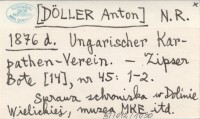 [DÖLLER Anton] N.R.
1876 d. Ungarischer Kar-
pathen-Verein. — Zipser
Bote [14], nr 45: 1-2.
Sprawa schroniska w Dolinie
Wielickiej, muzea MKE itd.